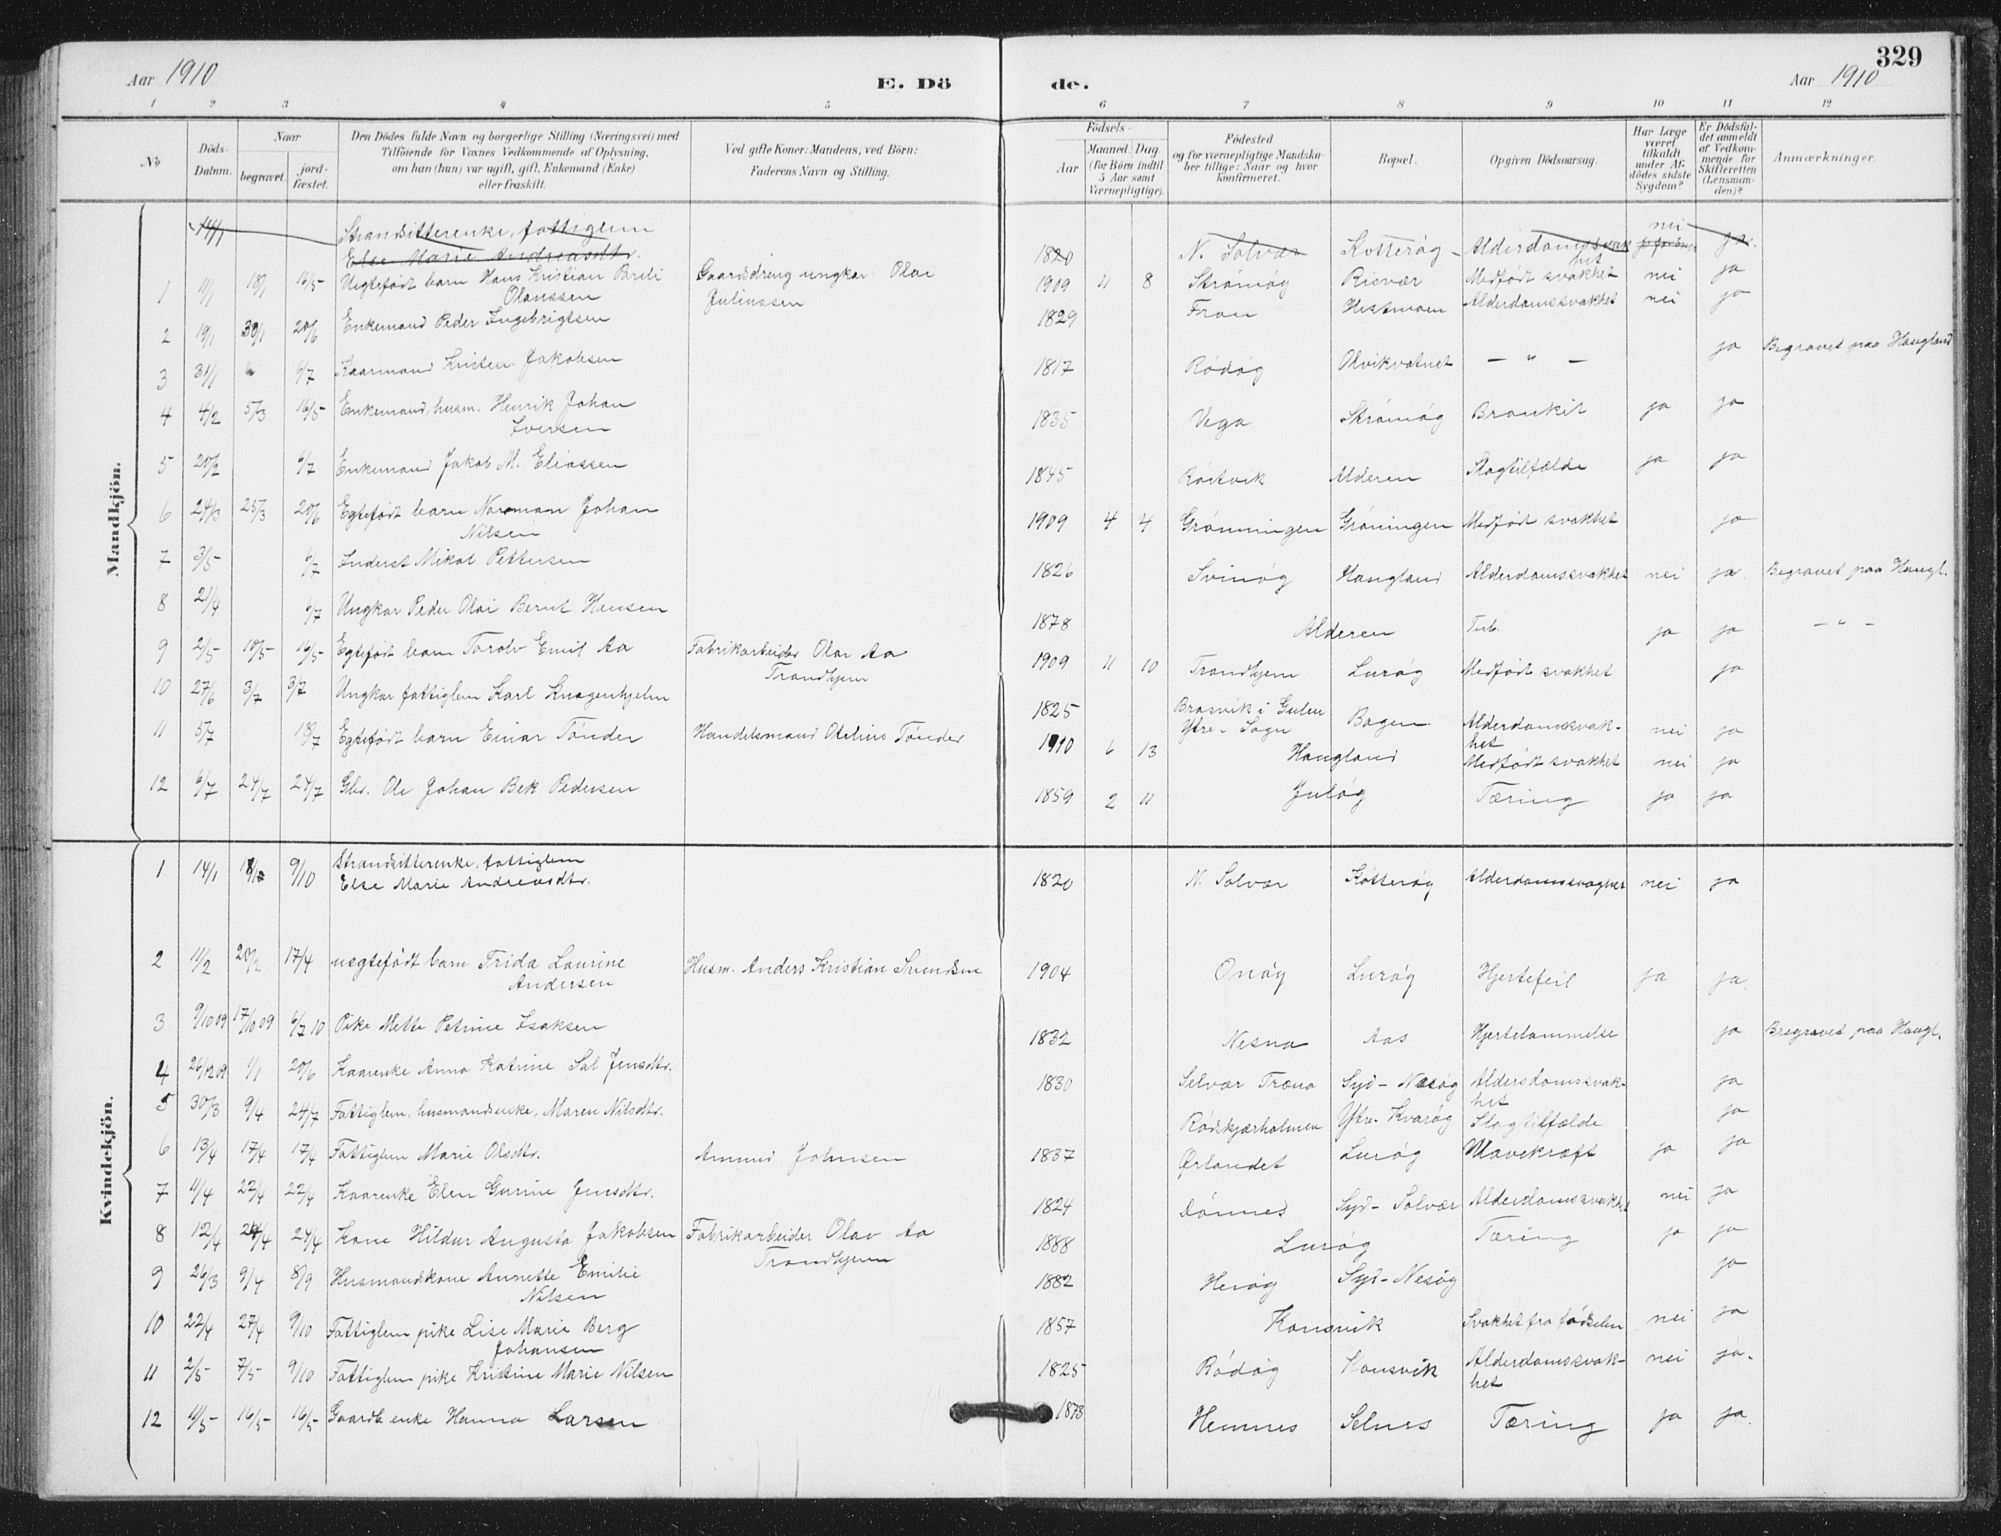 329
Aar 1910
E. Dö
de.
Aar 1910
1 2 3 4 5 6 7 8 9 10 11 12
No
Döds-
Datum.
Naar
begravet.
jord-
fæstet.
Den Dödes fulde Navn og borgerlige Stilling (Næringsvei) med
Tilföiende for Voxnes Vedkommende af Oplysning,
om han (hun) var ugift, gift, Enkemand (Enke)
eller fraskilt.
Ved gifte Koner: Mandens, ved Börn:
Faderens Navn og Stilling.
Födsels-
Aar
Maaned. Dag
(for Börn indtil
5 Aar samt
Værnepligtige).
Födested
og for værnepligtige Mandska-
ber tillige: Naar og hvor
konfirmeret.
Bopæl.
Opgiven Dödsaarsag.
Har Læge
været
tilkaldt
under Af-
dödes sidste
Sygdom?
Er Dödsfal-
det anmeldt
af Vedkom-
mende for
Skifteretten
(Lensman-
den)?
Anmærkninger.
Mandkjön.
14/1 Strandsitterenke, fattiglem
Else Marie Andreasdtr. 1820 N. Solvær Kotterøg Alderdomssvak
het nei ja
1 11/1 18/1 16/5 Uegtefødt barn Hans Kristian Preli
Olaussen Gaardsdreng ungkar Olai
Juliussen 1909 11 8 Strømøg Risvær Medfødt svakhet nei ja
2 19/1 30/1 20/6 Enkemand Peder Ingebrigtsen 1829 Fron Hestmoen Alderdomssvakhet nei ja
3 31/1 6/7 Kaarmand Kristen Jakobsen 1817 Rødøg Olvikvatnet — " — ja Begravet paa Haugland
4 4/2 5/3 16/5 Enkemand, husm. Henrik Johan
Iversen 1835 Vega Strømøg Bronkit ja ja
5 20/2 6/7 Enkemand Jakob M. Eliassen 1845 Røitvik Alderen Slagtilfælde ja ja
6 24/3 25/3 20/6 Egtefødt barn Norman Johan
Nilsen 1909 4 4 Grønningen Grøningen Medfødt svakhet ja
7 3/5 6/7 Inderst Mikal Pettersen 1826 Svinøg Haugland Alderdomssvakhet nei ja Begravet paa Haugl.
8 21/4 6/7 Ungkar Peder Olai Bernt Hansen 1878 Alderen Tub. ja ja — " —
9 2/5 10/5 16/5 Egtefødt barn Torolv Emil Aa Fabrikarbeider Olav Aa
Trondhjem 1909 11 10 Trondhjem Lurøg Medfødt svakhet ja
10 27/6 3/7 3/7 Ungkar fattiglem Karl Knagenhjelm 1825 Brosvik i Gulen
Ytre- Sogn Bogen Alderdomssvak-
het nei ja
11 5/7 18/7 Egtefødt barn Einar Tønder Handelsmand Otelius Tønder 1910 6 13 Haugland Medfødt svakhet nei ja
12 6/7 24/7 24/7 Gbr. Ole Johan Bek Pedersen 1859 2 11 Juløg Tæring ja ja
Kvindekjön.
1 14/1 9/10 Strandsitterenke, fattiglem
Else Marie Andreasdtr. 1820 N. Solvær Kotterøg Alderdomssvaghet nei ja
2 11/2 20/2 17/4 uegtefødt barn Frida Laurine
Andersen Husm. Anders Kristian Svendsen 1904 Onøg Lurøg Hjertefeil ja ja.
3 9/10 09 17/10 09 6/7 10 Pike Mette Petrine Isaksen 1832 Nesna Aas Hjertelammelse ja Begravet paa Haugl.
4 26/12 09 1/1 20/6 Kaarenke Anna Katrine Sal Jensdtr. 1830 Selvær Træna Syd- Nesøg Aldersdomssvak-
het ja
5 30/3 9/4 24/7 Fattiglem, husmandsenke, Maren Nilsdtr. Rødskjærholmen Ytre- Kvarøg Slagtilfælde ja
6 13/4 17/4 17/4 Fattiglem Marie Olsdtr. Amund Johnsen 1837 Ørlandet Lurøg Mavekræft ja ja
7 11/4 22/4 22/4 Kaarenke Elen Gurine Jensdtr. 1824 Dønnes Syd- Solvær Alderdomssvakhet nei ja
8 12/4 24/4 24/4 Kone Hildur Augusta Jakobsen Fabrikarbeider Olav Aa
Trondhjem 1888 Lurøg Tæring ja ja
9 26/3 9/4 8/9 Husmandskone Annette Emilie
Nilsen 1882 Herøg Syd- Nesøg ja
10 22/4 27/4 9/10 Fattiglem pike Lise Marie Berg
Johansen 1857 Konsvik Svakhet fra fødselen nei ja
11 2/5 7/5 9/10 Fattiglem pike Kristine Marie Nilsen 1825 Rødøg Konsvik Alderdomssvak-
het nei ja.
12 11/5 16/5 16/5 Gaardb. enke Hanna Larsen 1878 Hemnes Selnes Tæring ja ja.